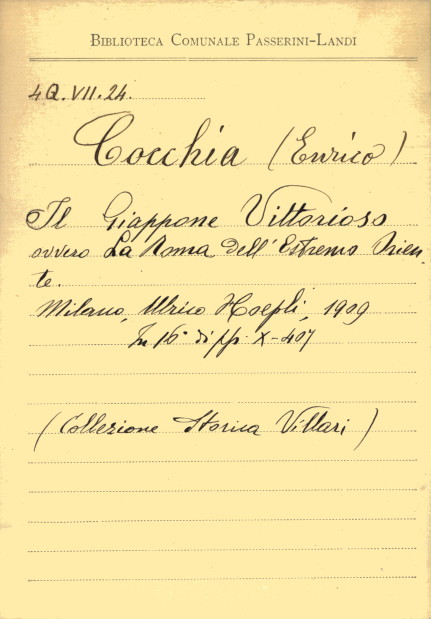 BIBLIOTECA COMUNALE PASSERINI-LANDI
4Q.VII.24.
Cocchia (Enrico)
Il Giappone Vittorioso
ovvero La Roma dell'Estremo Orien-
te.
Milano, Ulrico Hoepli, 1909
In 16° di pp. X-407
(Collezione Storica Villari)